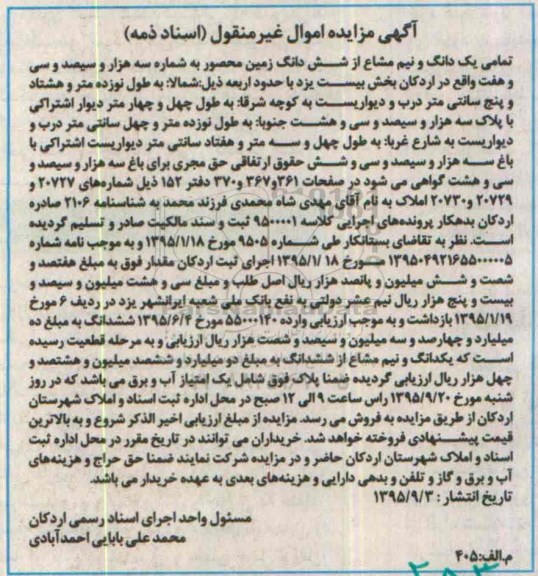 آگهی مزایده اموال غیرمنقول (اسناد ذمه)
تمامی یک دانگ و نیم مشاع از شش دانگ زمین محصور به شماره سه هزار و سیصد و سی
و هفت واقع در اردکان بخش بیست یزد با حدود اربعه ذیل:شمالا: به طول نوزده متر و هشتاد
و پنج سانتی متر درب و دیواریست به کوچه شرقا: به طول چهل و چهار متر دیوار اشتراکی
با پلاک سه هزار و سیصد و سی و هشت جنوبا: به طول نوزده متر و چهل سانتی متر درب و
دیواریست به شارع غربا: به طول چهل و سه متر و هفتاد سانتی متر دیواریست اشتراکی با
باغ سه هزار و سیصد و سی و شش حقوق ارتفاقی حق مجری برای باغ سه هزار و سیصد و
سی و هشت گواهی می شود در صفحات ۳۶۱و۳۶۷ و ۳۷۰ دفتر ۱۵۲ ذیل شماره‌های ۲۰۷۲۷ و
۲۰۷۲۹ و۲۰۷۳۰ املاک به نام آقای مهدی شاه محمدی فرزند محمد به شناسنامه ۲۱۰۶ صادره
اردکان بدهکار پرونده‌های اجرایی کلاسه ۹۵۰۰۰۰۱ ثبت و سند مالکیت صادر و تسلیم گردیده
است. نظر به تقاضای بستانکار طی شماره ۹۵۰۵ مورخ ۱۳۹۵/۱/۱۸ و به موجب نامه شماره
۱۳۹۵۰۴۹۲۱۶۵۵۰۰۰۰۰۵ مورخ ۱۸ /۱۳۹۵/۱ اجرای ثبت اردکان مقدار فوق به مبلغ هفتصد و
شصت و شش میلیون و پانصد هزار ریال اصل طلب و مبلغ سی و هشت میلیون و سیصد و
بیست و پنج هزار ریال نیم عشر دولتی به نفع بانک ملی شعبه ایرانشهر یزد در ردیف ۶ مورخ
۱۳۹۵/۱/۱۹ بازداشت و به موجب ارزیابی وارده ۵۵۰۰۰۱۴۰ مورخ ۱۳۹۵/۶/۴ ششدانگ به مبلغ ده
میلیارد و چهارصد و سه میلیون و سیصد و شصت هزار ریال ارزیابی و به مرحله قطعیت رسیده
است که یکدانگ و نیم مشاع از ششدانگ به مبلغ دو میلیارد و ششصد میلیون و هشتصد و
چهل هزار ریال ارزیابی گردیده ضمنا پلاک فوق شامل یک امتیاز آب و برق می باشد که در روز
شنبه مورخ ۱۳۹۵/۹/۲۰ راس ساعت ۹ الی ۱۲ صبح در محل اداره ثبت اسناد و املاک شهرستان
اردکان از طریق مزایده به فروش می رسد. مزایده از مبلغ ارزیابی اخیر الذکر شروع و به بالاترین
قیمت پیشنهادی فروخته خواهد شد. خریداران می توانند در تاریخ مقرر در محل اداره ثبت
اسناد و املاک شهرستان اردکان حاضر و در مزایده شرکت نمایند ضمنا حق حراج و هزینه‌های
آب و برق و گاز و تلفن و بدهی دارایی و هزینه‌های بعدی به عهده خریدار می باشد.
تاریخ انتشار : ۱۳۹۵/۹/۳
مسئول واحد اجرای اسناد رسمی اردکان
محمد علی بابایی احمدآبادی
م.الف:۴۰۵